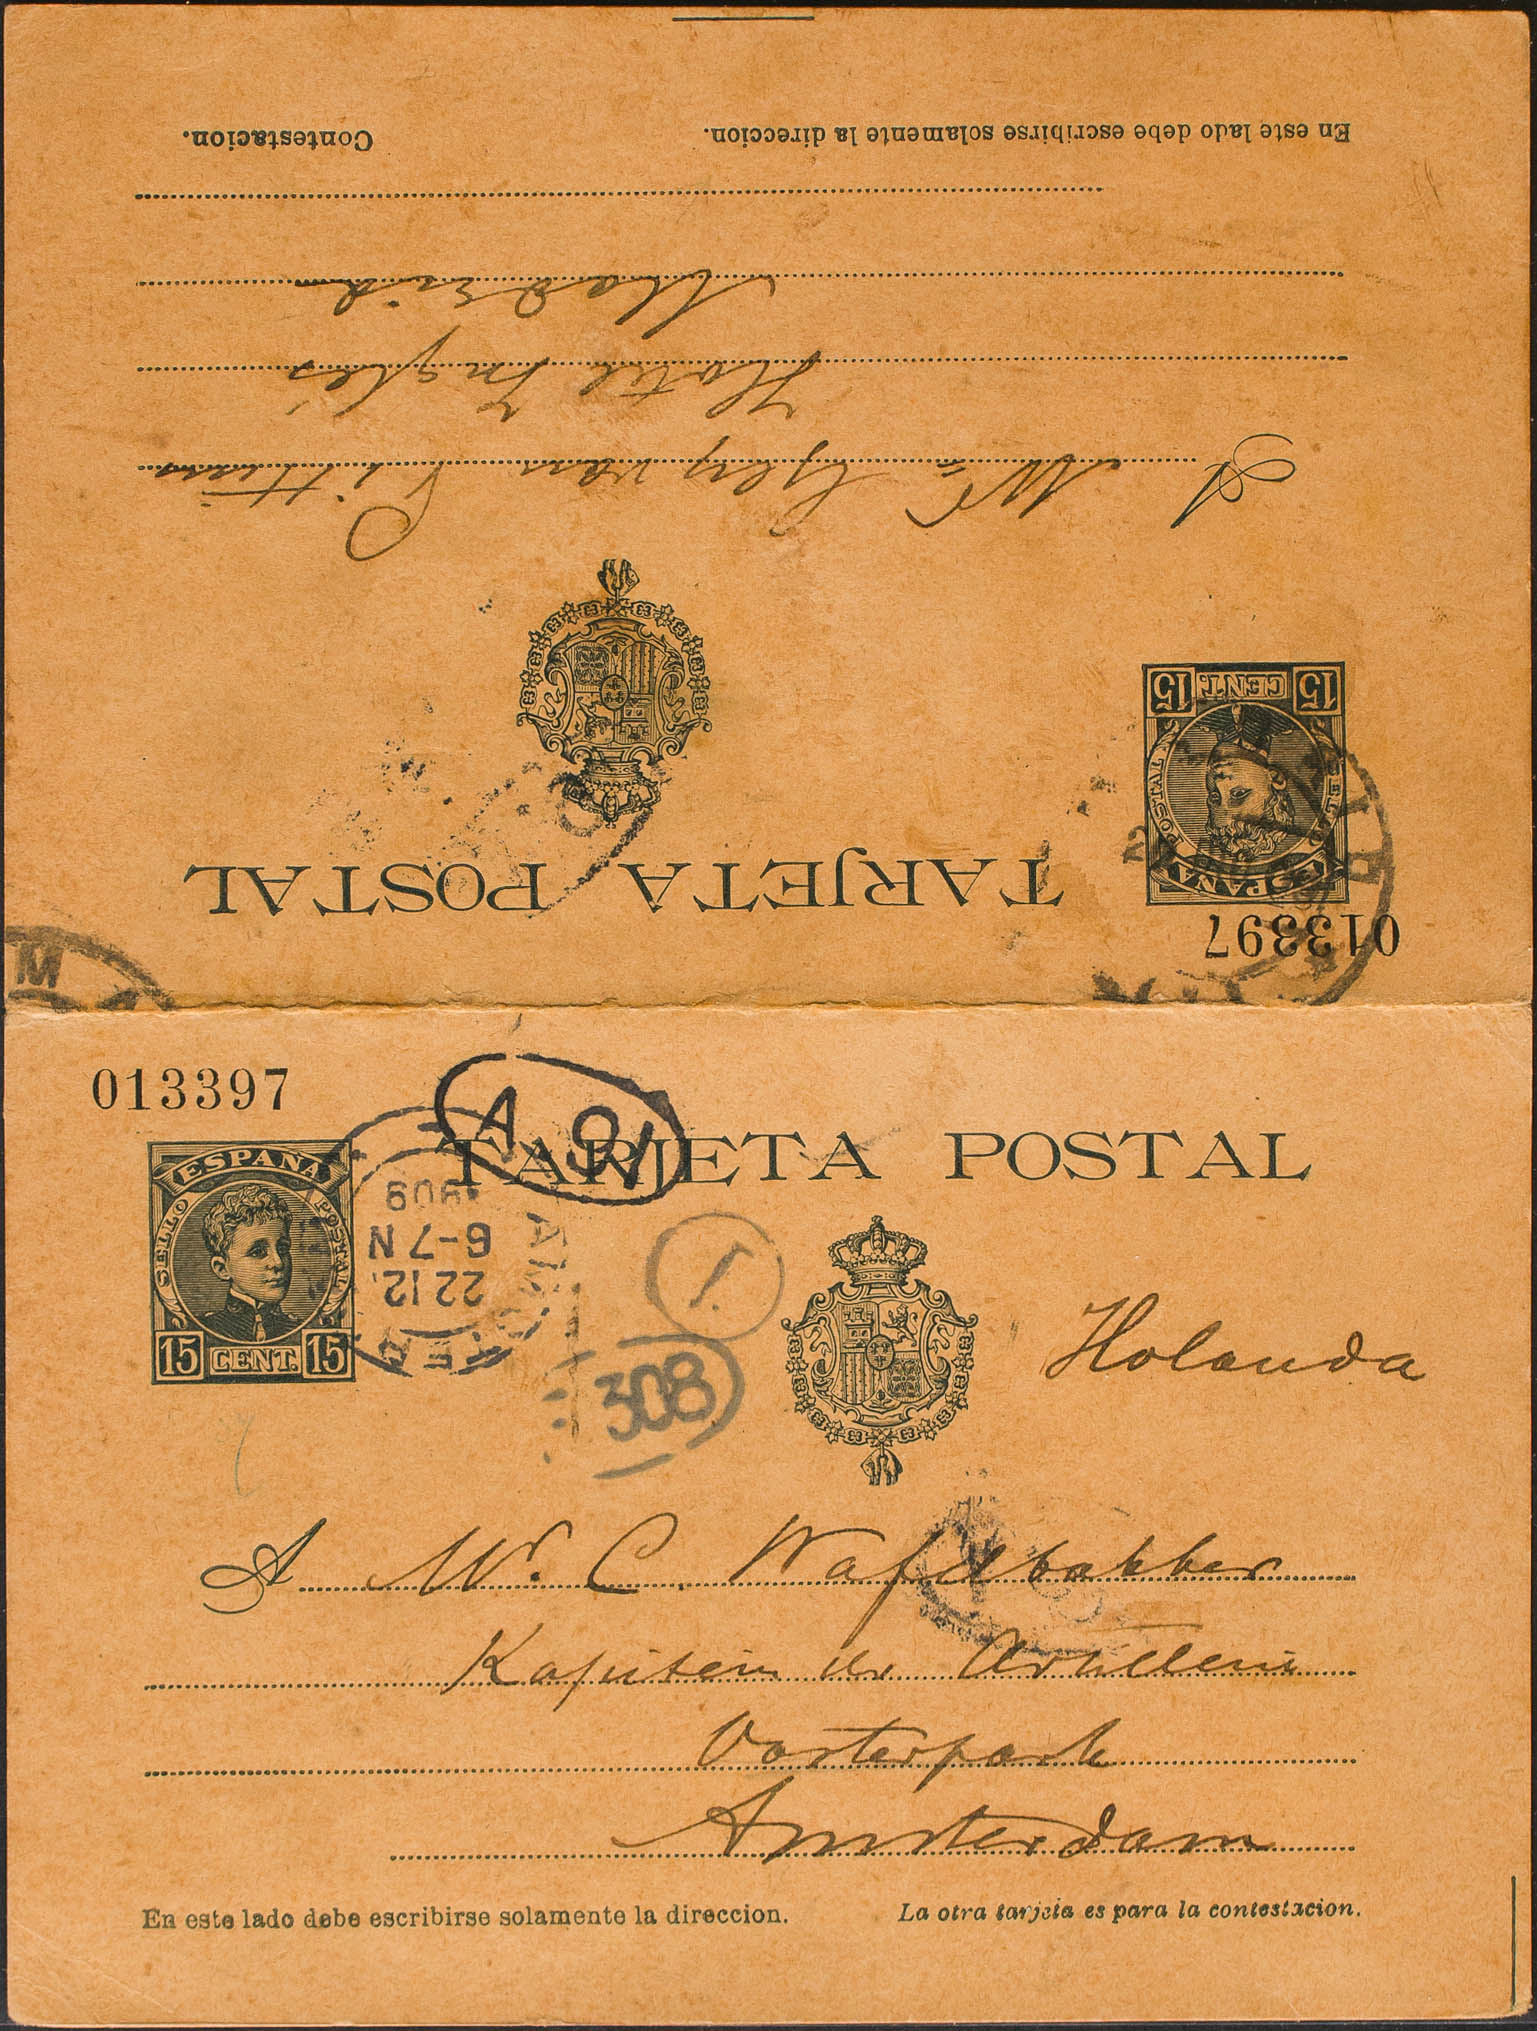 Contestacion.
En este lado debe escribirse solamente la direccion.
Madrid
Hotel Inglés
A Mr van
TARJETA POSTAL
ESPAÑA
SELLO POSTAL
15 CENT. 15
013397
013397
TARJETA POSTAL
A
ESPAÑA
SELLO POSTAL
15 CENT. 15
22 12.
6-7 N
1.
308
Holanda
A Mr. C.
Kapitein der Artillerie
Oosterpark
Amsterdam
En este lado debe escribirse solamente la direccion.
La otra tarjeta es para la contestacion.